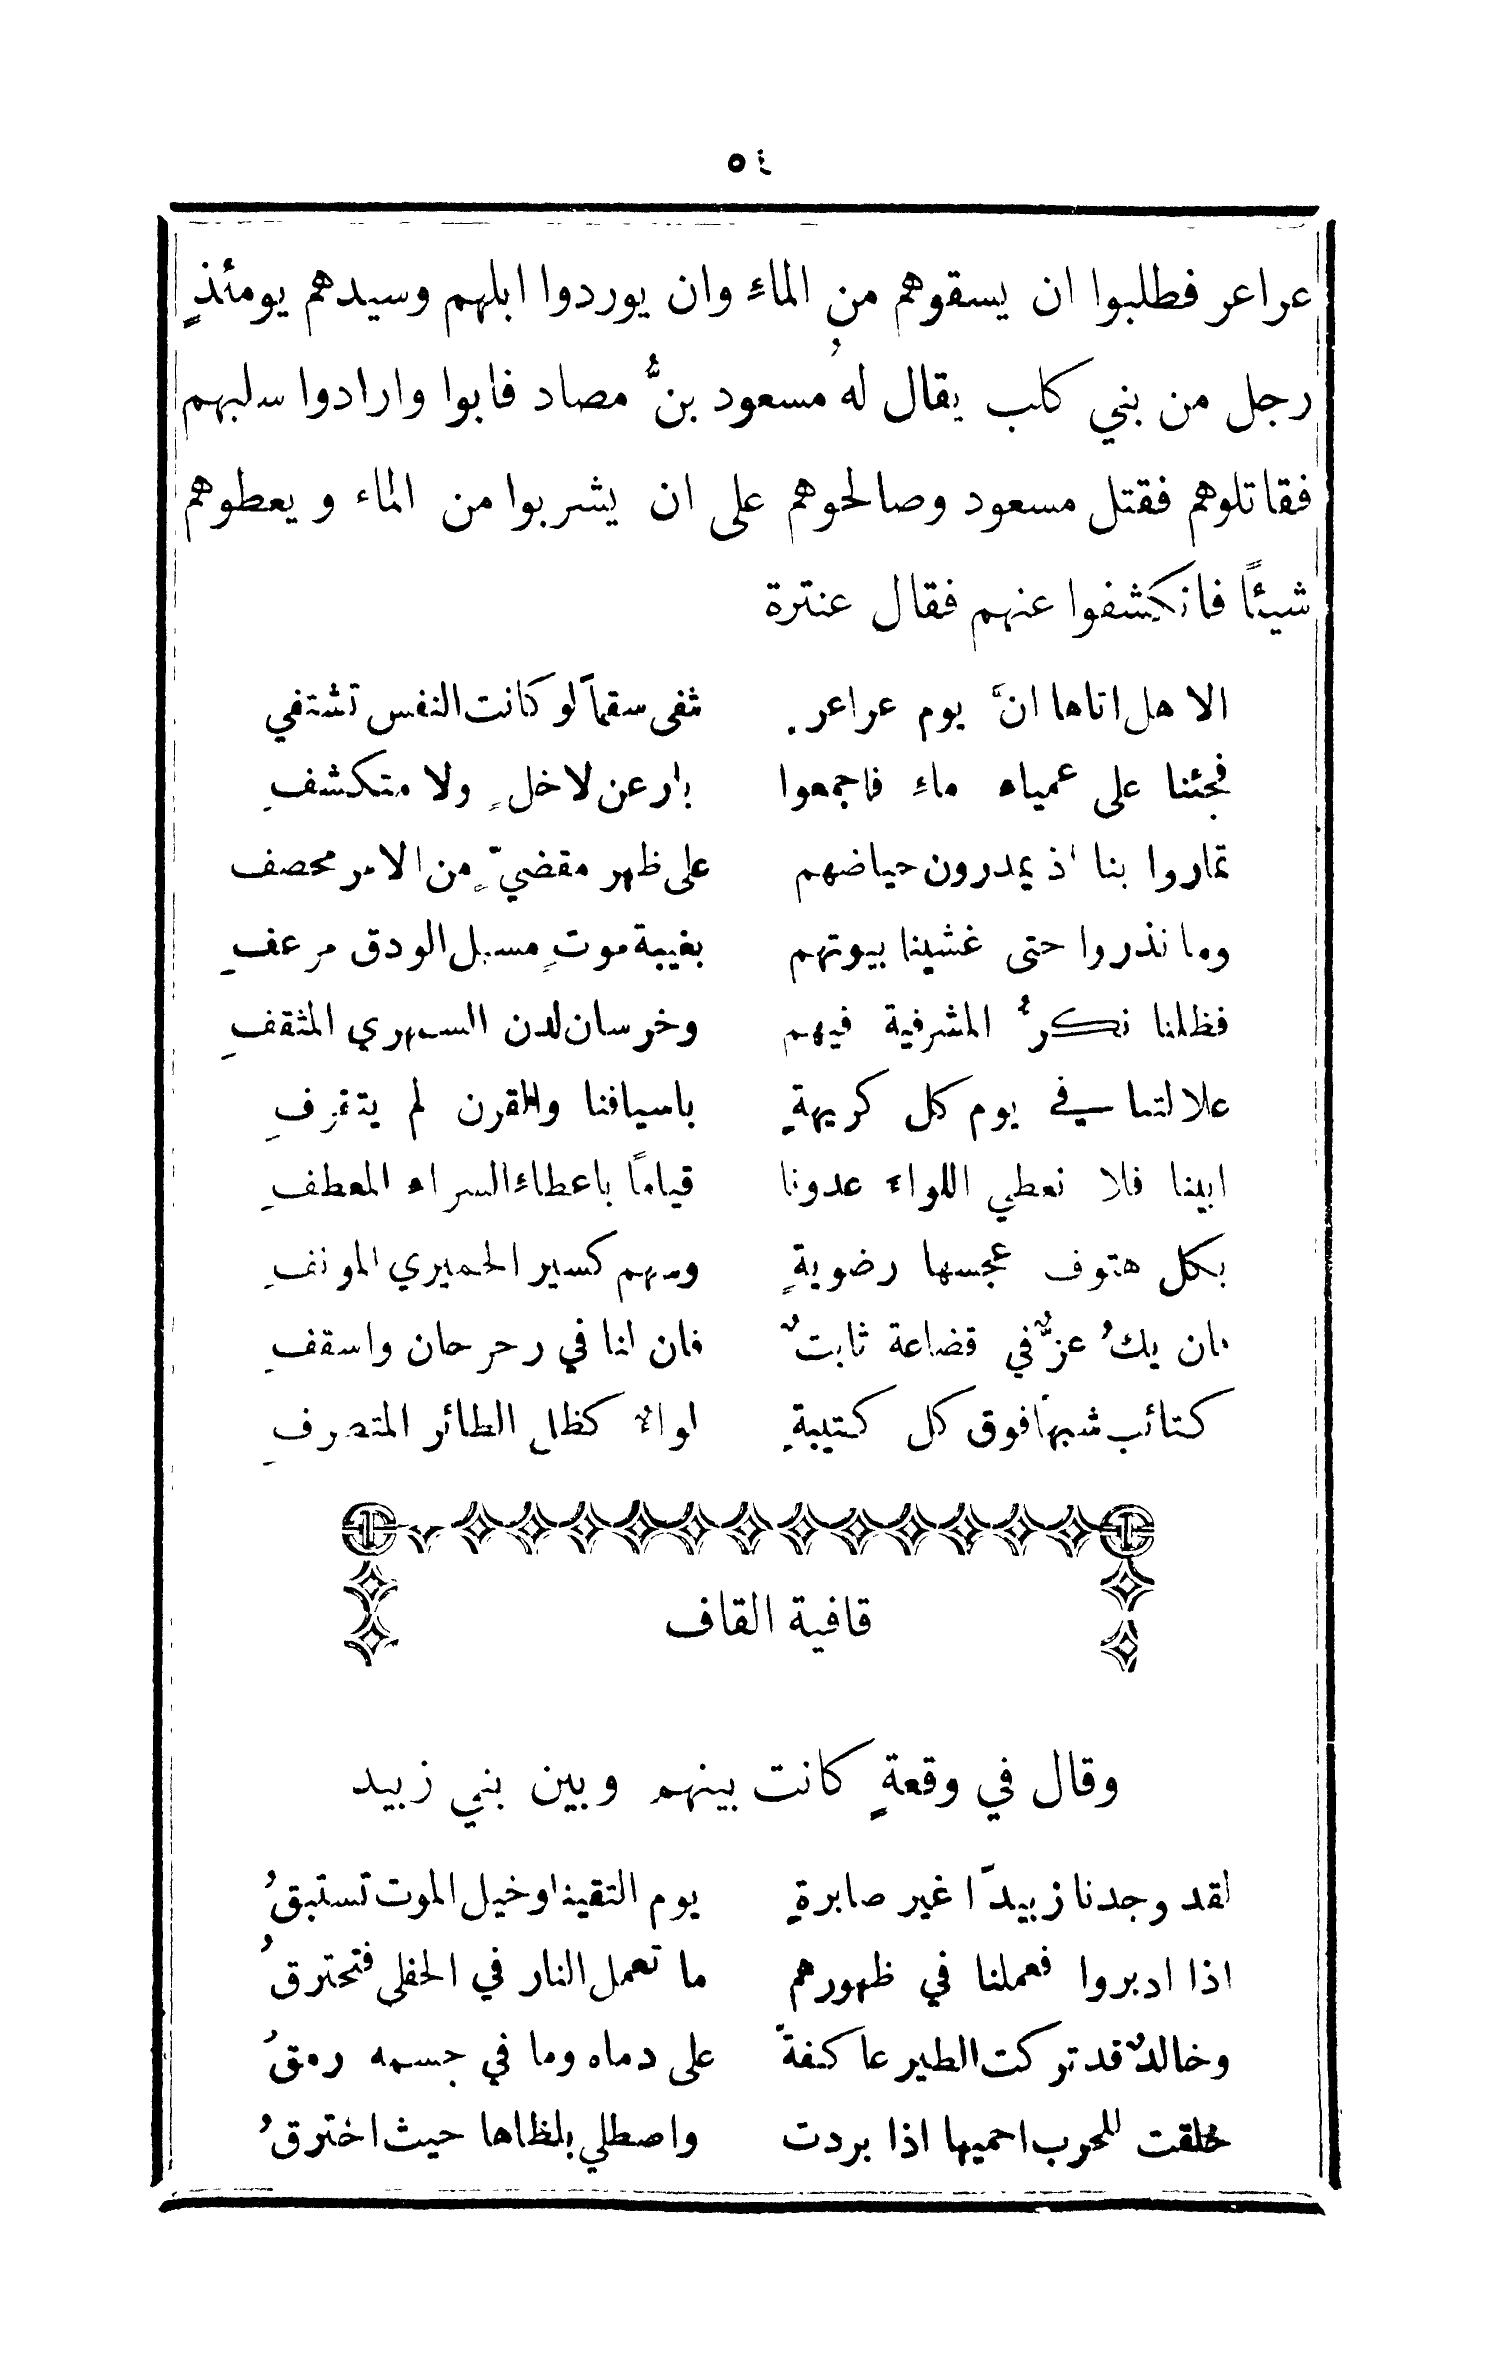 ٥٤
عراعر فطلبوا ان يسقوهم من الماءِ وان يوردوا ابلهم وسيدهم يومئذٍ
رجل من بني كلب يقال لهُ مسعود بنُّ مصاد فابوا وارادوا سلبهم
فقاتلوهم فقتل مسعود وصالحوهم على ان يشربوا من الماء ويعطوهم
شيئًا فانكشفوا عنهم فقال عنترة
الا هل اتاها انَّ يوم عراعر شفى سقماً لو كانت النفس تشتفي
فجئنا على عمياه ماءِ فاجمعوا بارعن لا خلٍ ولا متكشفِ
تماروا بنا اذ يمدرون حياضهم على ظهر مقضيٍّ من الامر محصف
وما نذروا حتى غشينا بيوتهم بغيبة موتٍ مسبل الودق مرعفِ
فظلنا نكرُّ المشرفية فيهم وخرسان لدن السمهري المثقفِ
علالتنا في يوم كل كريهةٍ باسيافنا والقرن لم يتقرفِ
ابينا فلا نعطي اللواء عدونا قيامًا باعطاء السراء المعطفِ
بكل هتوف عجسها رضويةٍ وسهم كسير الحميري المونفِ
فان يكُ عزٌّ في قضاعة ثابتٌ فان لنا في رحرحان واسقفِ
كتائب شبهًا فوق كل كتيبةٍ لواءٌ كظل الطائر المتصرفِ
قافية القاف
وقال في وقعةٍ كانت بينهم وبين بني زبيد
لقد وجدنا زبيدًا غير صابرةٍ يوم التقينا وخيل الموت تستبقُ
اذا ادبروا فعملنا في ظهورهم ما تعمل النار في الحفلى فتحترقُ
وخالدٌ قد تركت الطير عاكفةً على دماه وما في جسمه رمقُ
خلقت للحرب احميها اذا بردت واصطلي بلظاها حيث اخترقُ